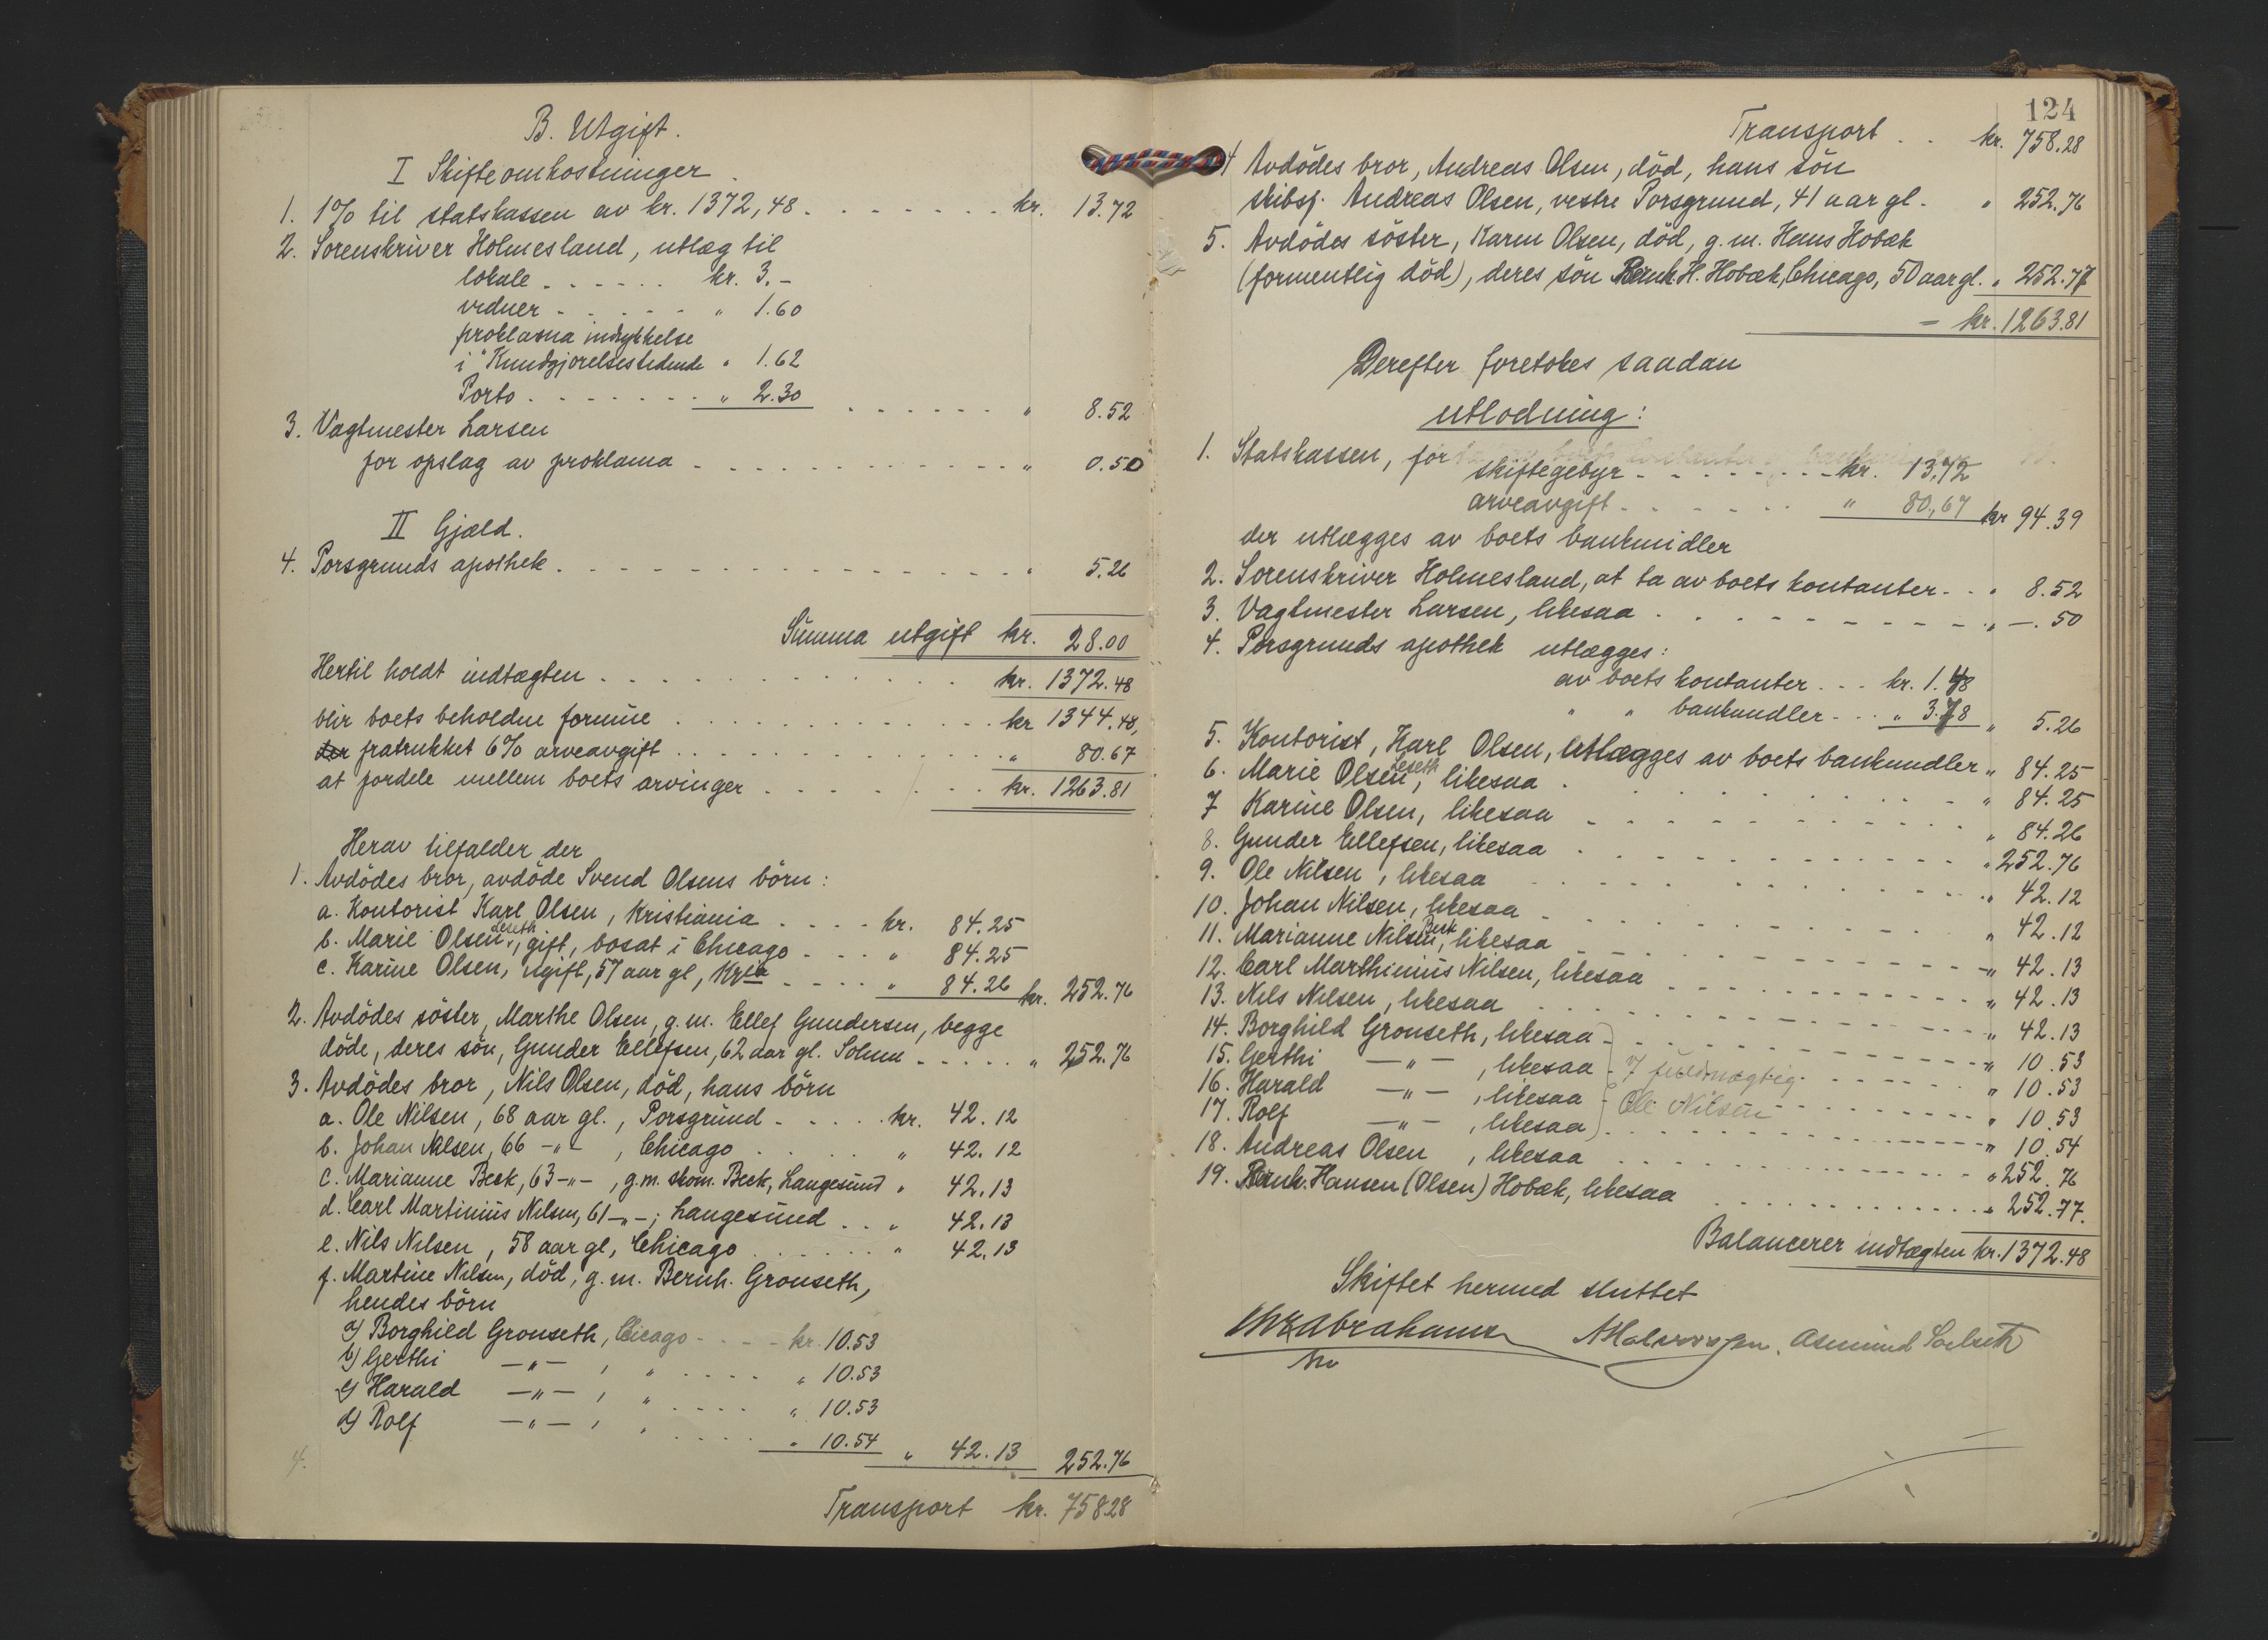 B. Utgift.
I Skifteomkostninger.
1. 1% til statskassen av kr. 1372,48 . . . . . . . kr. 13.72
2. Sorenskriver Holmesland, utlæg til
lokale . . . . . . kr. 3.-
vidner . . . . . . " 1.60
proklama indrykkelse
i "Kundgjørelsestidende " 1.62
Porto . . . . . . . " 2.30 . . . . . . " 8.52
3. Vagtmester Larsen
for opslag av proklama . . . . . . . . . . . . " 0.50
II Gjæld.
4. Porsgrunds apothek . . . . . . . . . . . . . . . " 5.26
Summa utgift kr. 28.00
Hertil holdt indtægten . . . . . . . . . . . . kr. 1372.48
blir boets beholdne formue . . . . . . . . . . . kr 1344.48,
der fratrukket 6% arveavgift . . . . . . . . . . . " 80.67
at fordele mellem boets arvinger . . . . . . . kr. 1263.81
Herav tilfalder der
1. Avdödes bror, avdöde Svend Olsens börn:
a. Kontorist Karl Olsen, Kristiania . . . . kr. 84.25
b. Marie Olsen Leseth, gift, bosat i Chicago . . . . " 84.25
c. Karine Olsen, ugift, 57 aar gl, Kria . . . . " 84.26 kr. 252.76
2. Avdödes söster, Marthe Olsen, g.m. Ellef Gundersen, begge
döde, deres sön, Gunder Ellefsen, 62 aar gl. Solum . . . . . " 252.76
3. Avdödes bror, Nils Olsen, död, hans börn
a. Ole Nilsen, 68 aar gl., Porsgrund . . . . . kr. 42.12
b. Johan Nilsen, 66 -"- , Chicago . . . . . " 42.12
c. Marianne Beck, 63 -"- , g.m. skom. Beck, Langesund " 42.13
d. Carl Martinius Nilsen, 61 -"-; Langesund . . " 42.13
e. Nils Nilsen, 58 aar gl, Chicago . . . . . . " 42.13
f. Martine Nilsen, död, g.m. Bernh. Gronseth,
hendes börn
a) Borghild Gronseth, Chicago . . . . kr. 10.53
b) Gerthi -"- , " . . . . " 10.53
c) Harald -"- , " . . . . " 10.53
d) Rolf -"- , " . . . . " 10.54 " 42.13 252.76
4.
Transport kr. 758.28
124
Transport . . kr. 758.28
4 Avdödes bror, Andreas Olsen, död, hans sön
skibsf. Andreas Olsen, vestre Porsgrund, 41 aar gl. " 252.76
5. Avdödes söster, Karen Olsen, död, g.m. Hans Hobæk
(formentlig död), deres sön Bernh. H. Hobæk, Chicago, 50 aar gl. " 252.77
- kr. 1263.81
Derefter foretokes saadan
utlodning:
1. Statskassen, for
skiftegebyr . . . . . . . kr. 13.72
arveavgift . . . . . . " 80,67 kr 94.39
der utlægges av boets bankmidler
2. Sorenskriver Holmesland, at ta av boets kontanter . . " 8.52
3. Vagtmester Larsen, likesaa . . . . . . . . . . " —.50
4. Porsgrunds apothek utlægges:
av boets kontanter . . . kr. 1.48
" " bankmidler . . . " 3.78 " 5.26
5. Kontorist, Karl Olsen, utlægges av boets bankmidler " 84.25
6. Marie Olsen Leseth, likesaa . . . . . . . . " 84.25
7 Karine Olsen, likesaa . . . . . . . . . . " 84.26
8. Gunder Ellefsen, likesaa . . . . . . . . . . " 252.76
9. Ole Nilsen, likesaa . . . . . . . . . . " 42.12
10. Johan Nilsen, likesaa . . . . . . . . . . " 42.12
11. Marianne Nilsen Beck, likesaa . . . . . . . . . " 42.13
12. Carl Marthinius Nilsen, likesaa . . . . . . . . " 42.13
13. Nils Nilsen, likesaa . . . . . . . . . . " 42.13
14. Borghild Gronseth, likesaa . . . . . . . . . " 10.53
15. Gerthi -"- , likesaa . . . . . . " 10.53
16. Harald -"- , likesaa . . . . . . " 10.53
17. Rolf -"- , likesaa . . . . . . . . " 10.54
Ole Nilsen
18. Andreas Olsen, likesaa . . . . . . . . . " 252.76
19. Bernh. Hansen (Olsen) Hobæk, likesaa . . . . . . . . " 252.77.
Balancerer indtægten kr. 1372.48
Skiftet hermed sluttet